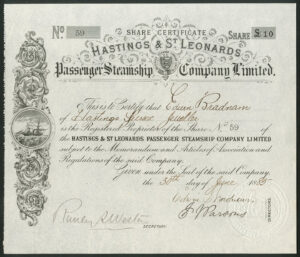 SHARE CERTIFICATE
No 59 SHARE £10
HASTINGS & St LEONARDS
Passenger Steamship Company Limited.
This is to Certify that Edwin Bradnam
of Hastings Jeweller
is the Registered Proprietor of the Share No 59 of
the HASTINGS & ST LEONARDS PASSENGER STEAMSHIP COMPANY LIMITED
subject to the Memorandum and Articles of Association and
Regulations of the said Company.
Given under the Seal of the said Company,
the 30th day of June 1885
Parsons
DIRECTORS
SECRETARY.